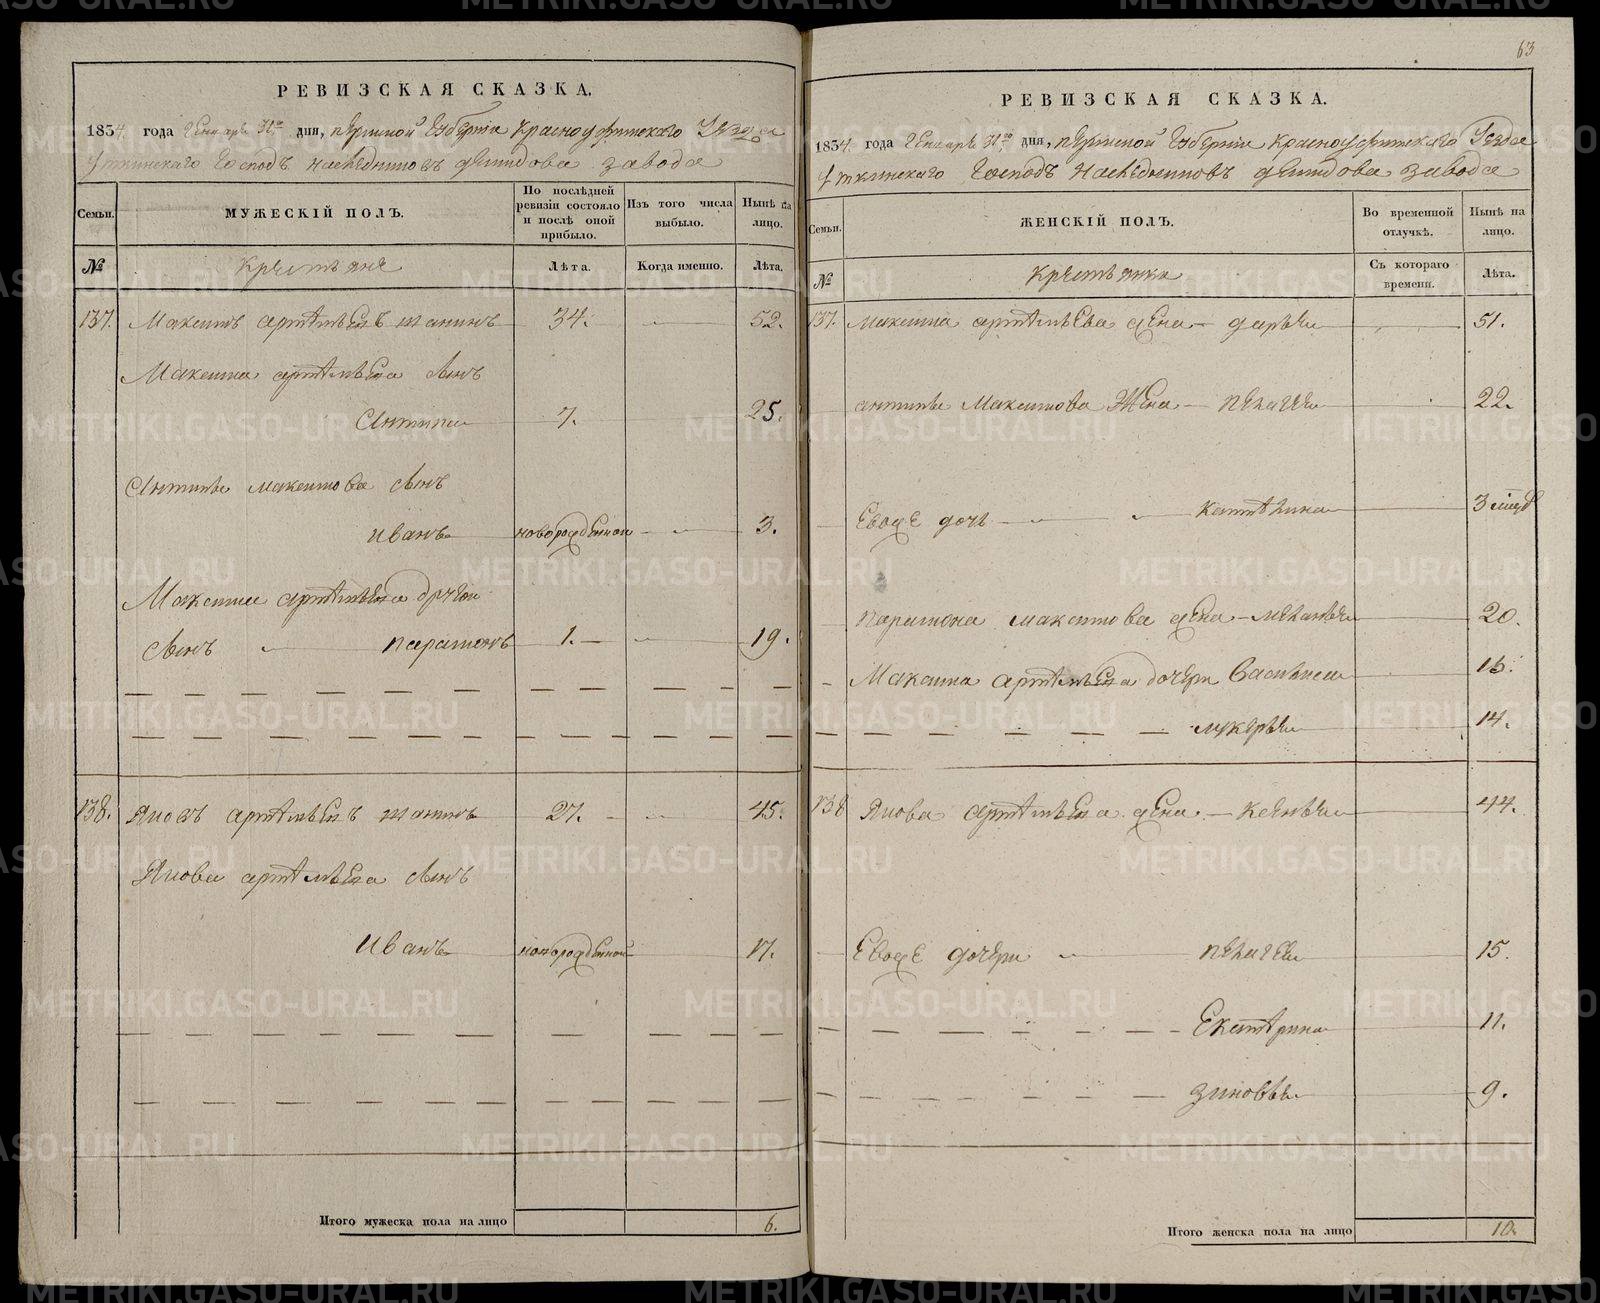 63
РЕВИЗСКАЯ СКАЗКА.
1854. года Генваря 31го дня, пермской Губернiи Красноуфимскаго Уѣзда
Уткинскаго Господъ наследниковъ демидова завода
Семьи.
МУЖЕСКIЙ ПОЛЪ.
По послѣдней ревизiи состояло и послѣ оной прибыло.
Изъ того числа выбыло.
Нынѣ на лицо.
№
Крестьяне
Лѣта.
Когда именно.
Лѣта.
137. Максимъ артемьевъ 34. 52.
Максима артемьева сынъ
Антипа 7. 25.
Антипы максимова сынъ
иванъ новорожденной 3.
Максима артемьева другой
сынъ парамонъ 1. 19.
138. Яковъ артемьевъ 27. 45.
Якова артемьева сынъ
Иванъ новорожденной 17.
Итого мужеска пола на лицо 6.
РЕВИЗСКАЯ СКАЗКА.
1854. года Генваря 31го дня, пермской Губернiи Красноуфимскаго Уѣзда
Уткинскаго Господъ наследниковъ демидова завода
Семьи.
ЖЕНСКIЙ ПОЛЪ.
Во временной отлучкѣ.
Нынѣ на лицо.
№
крестьянки
Съ котораго времени.
Лѣта.
137. максима артемьева жена дарья 51.
антипы Максимова Жена пелагея 22.
Евоже дочь 3
парамона максимова жена меланья 20.
Максима артемьева дочери Василиса
лукерья 14.
138 Якова артемьева жена 44.
Евоже дочери пелагея 15.
Екатерина 11.
зиновья 9.
Итого женска пола на лицо 10.
METRIKI.GASO-URAL.RU